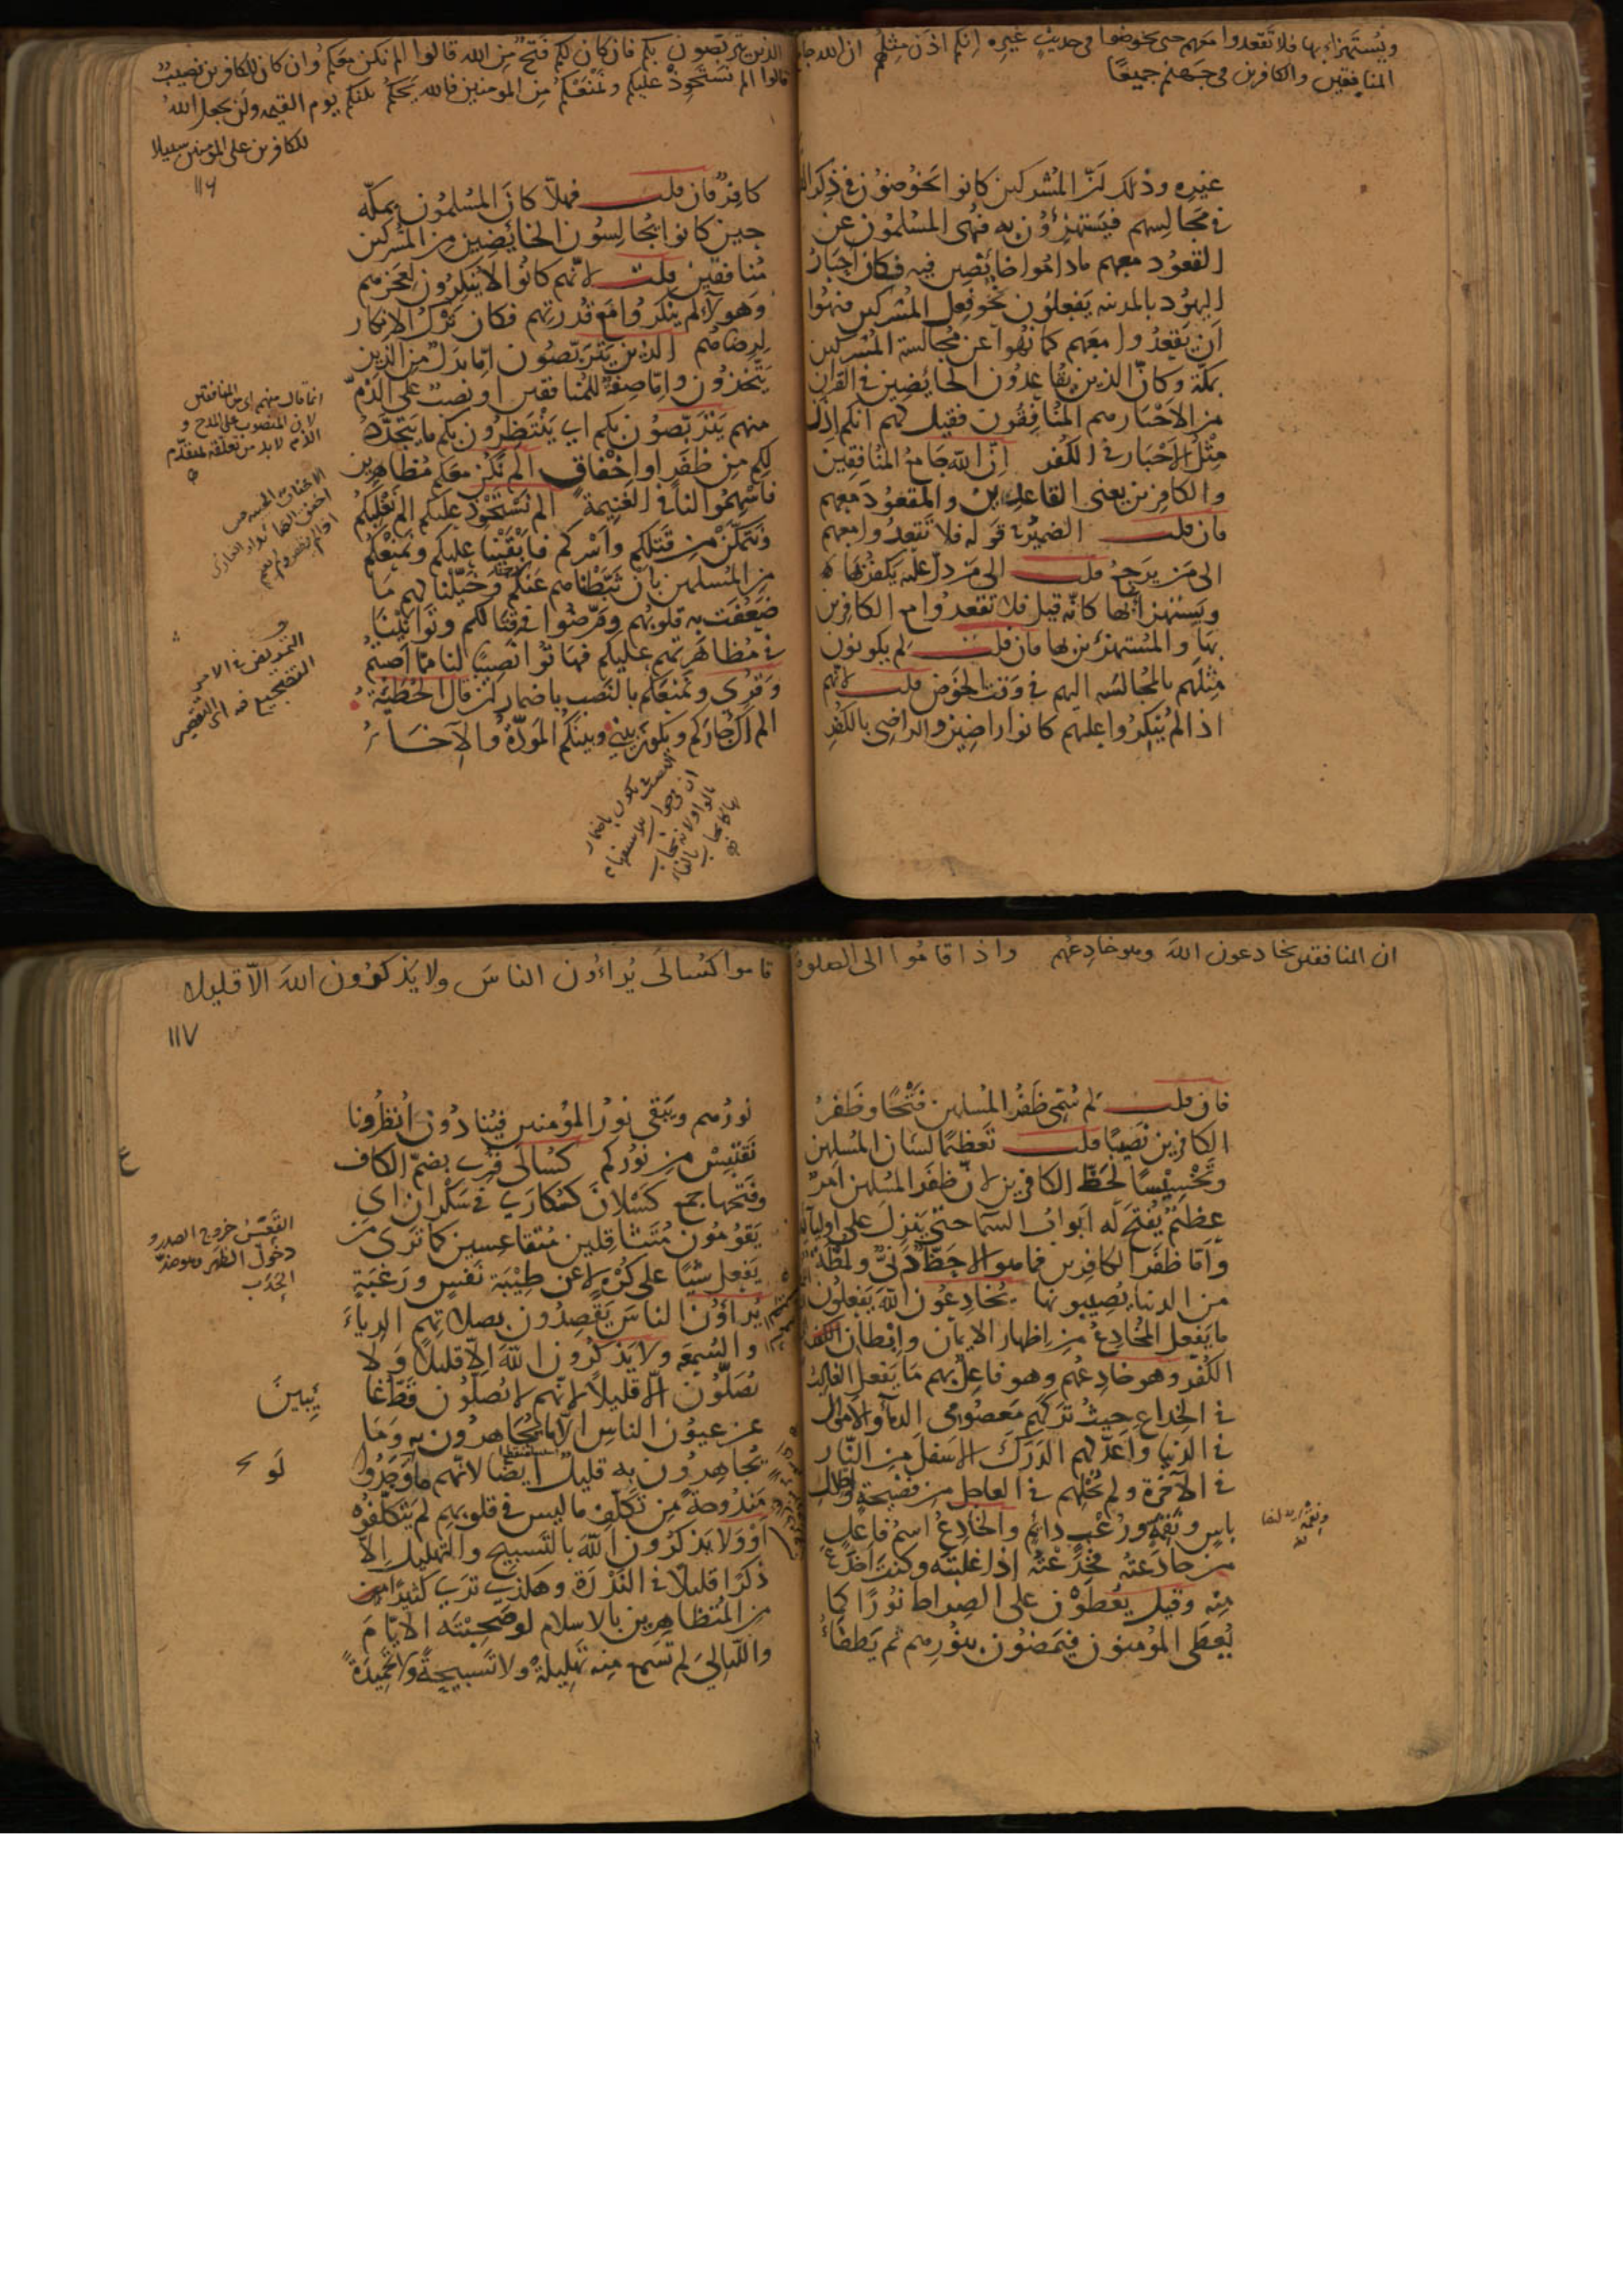 ويستهزاء بها فلا تقعدوا معهم حتى يخوضوا فى حديث غيره انكم اذن مثلهم ان الله جامع
المنافقين والكافرين فى جهنم جميعا
غيره وذلك لأن المشركين كانوا يخوضون في ذكر القرآن
في مجالسهم فيستهزؤن به فنهى المسلمون عن
القعود معهم ماداموا خائضين فيه فكان أحبار
اليهود بالمدينه يفعلون نحو فعل المشركين فنهوا
أن يقعدوا معهم كما نهوا عن مجالسة المشركين
بمكة وكان الذين يقاعدون الخايضين في القرآن
من الأحبار هم المنافقون فقيل لهم انكم اذن
مثل الأحبار في الكفر إن الله جامع المنافقين
والكافرين يعنى القاعدين والمقعود معهم
فان قلت الضمير في قوله فلا تقعدوا معهم
الى من يرجع قلت الى من دل عليه يكفر بها
ويستهزأ بها كانه قيل فلا تقعدوا مع الكافرين
بها والمستهزئين بها فان قلت لم يكونون
مثلهم بالمجالسه اليهم في وقت الخوض قلت لانهم
اذا لم ينكروا عليهم كانوا راضين والراضى بالكفر
الذين يتربصون بكم فان كان لكم فتح من الله قالوا الم نكن معكم وان كان للكافرين نصيب
قالوا الم نستحوذ عليكم ونمنعكم من المومنين فالله يحكم بينكم يوم القيمه ولن يجعل الله
للكافرين على المومنين سبيلا
١١٦
كافر فان قلت فهلا كان المسلمون بمكه
حين كانوا يجالسون الخائضين من المشركين
منافقين قلت لانهم كانوا لا ينكرون لعجزهم
وهولاء لم ينكروا مع قدرتهم فكان ترك الانكار
لرضاهم الذين يتربصون اما بدل من الذين
يتخذون واما صفة للمنافقين او نصب على الذم
منهم يتربصون بكم اي ينتظرون بكم ما يتجدد
لكم من ظفر او اخفاق الم نكن معكم مظاهرين
فاسهموا لنا في الغنيمة الم نستحوذ عليكم الم نغلبكم
ونتمكن من قتلكم وأسركم فابقينا عليكم ونمنعكم
من المسلمين بان ثبطناهم عنكم وخيلنا لهم ما
ضعفت به قلوبهم ومرضوا في قتالكم وتوانينا
في مظاهرتهم عليكم فهاتوا نصيبا لنا مما أصبتم
وقرى ونمنعكم بالنصب باضمار ان قال الحطيئة
الم أك جاركم ويكون بيني وبينكم المودة والإخاء
انما قال منهم اى من المنافقين
لان المنصوب على المدح و
الذم لابد من تعلقه لمتقدم
التمريض في الامر
التضجيع فيه اى التقصير
ان المنافقين يخادعون الله وهو خادعهم واذا قاموا الى الصلوة
فان قلت لم سمى ظفر المسلمين فتحا وظفر
الكافرين نصيبا قلت تعظيما لشان المسلمين
وتخسيسا لحظ الكافرين لان ظفر المسلمين امر
عظيم يفتح له ابواب السما حتى ينزل على اوليائه
واما ظفر الكافرين فما هو الا حظ دني ولمظة
من الدنيا يصيبونها يخادعون الله يفعلون
ما يفعل المخادع من اظهار الايمان وإبطان
الكفر وهو خادعهم وهو فاعل بهم ما يفعل الغالب
في الخداع حيث تركهم معصومي الدماء والاموال
في الدنيا وأعد لهم الدرك الاسفل من النار
في الآخرة ولم يخلهم في العاجل من فضيحة وإحلال
باس ونقمة ورعب دائم والخادع اسم فاعل
من خادعته فخدعته اذا غلبته وكنت أخدع
منه وقيل يعطون على الصراط نورا كما
يعطى المؤمنون فيمضون بنورهم ثم يطفأ
قاموا كسالى يراءون الناس ولا يذكرون الله الا قليلا
١١٧
نورهم ويبقى نور المؤمنين فينادون انظرونا
نقتبس من نوركم كسالى قرى بضم الكاف
وفتحها جمع كسلان كسكارى في سكران اي
يقومون متثاقلين متقاعسين كما ترى من
يفعل شيا على كره لا عن طيبة نفس ورغبة
يراؤن الناس يقصدون بصلاتهم الرياء
والسمعه ولا يذكرون الله الا قليلا ولا
يصلون الا قليلا لانهم لا يصلون قط غائبين
عن عيون الناس الا ما يجاهرون به وما
يجاهرون به قليل أيضا لانهم ما وجدوا
مندوحة من تكلف ما ليس في قلوبهم لم يتكلفوه
أو ولا يذكرون الله بالتسبيح والتهليل الا
ذكرا قليلا في الندرة وهكذى ترى كثيرا
من المتظاهرين بالاسلام لو صحبته الايام
والليالي لم تسمع منه تهليلة ولا تسبيحة ولا تحميدة
القعس خروج الصدر و
دخول الظهر وهو ضد
الحدب